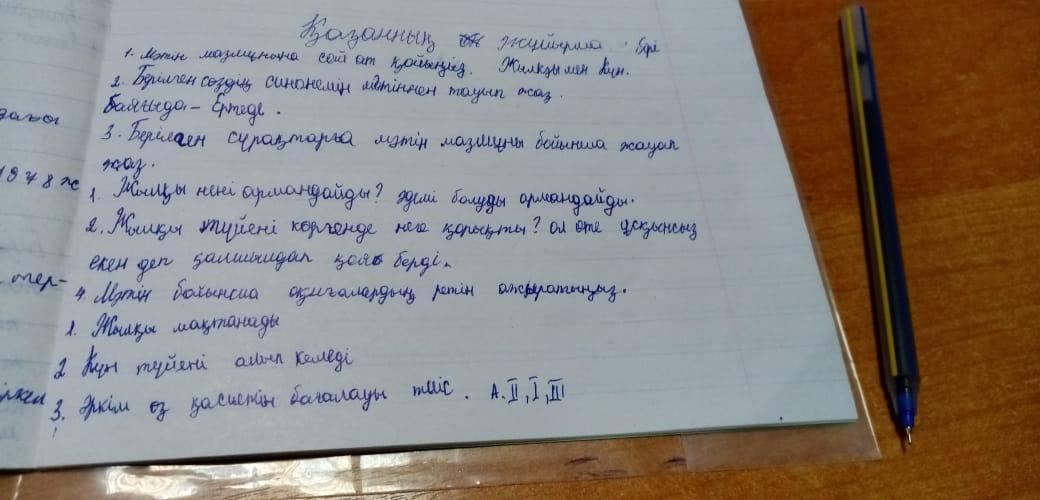 Қазанның жүйырма бірі
1. Мәтін мазмұнына сай ат қойыңыз. Жылқы мен Күн.
2. Берілген сөздің синонемін мәтіннен тауып жаз.
Баяғыда - Ертеде.
3. Берілген сұрақтарға мәтін мазмұны бойынша жауап
жаз.
1978 ж
1. Жылқы нені армандайды? әдемі болуды армандайды.
2. Жылқы түйені көргенде неге қорықты? ол өте ұсқынсыз
екен деп қалшылдап қоя берді.
тер-
4. Мәтін бойынша оқиғалардың ретін ажыратыңыз.
1. Жылқы мақтанады
2 Күн түйені алып келеді
3. Әркім өз қасиетін бағалауы тиіс. А. II, I, III